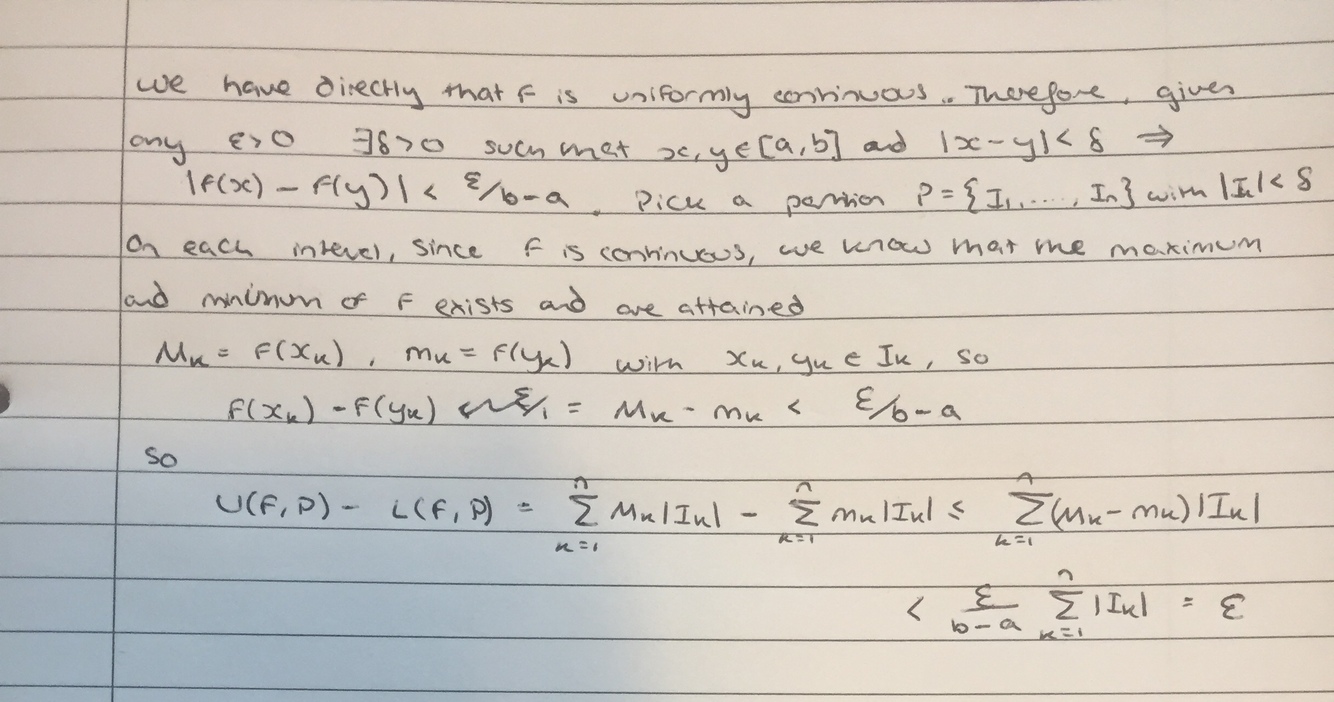 we have directly that f is uniformly continuous. Therefore, given
any ε>0 ∃δ>0 such that x,y∈[a,b] and |x-y|<δ ⇒
|f(x) - f(y)| < ε/b-a. Pick a partition P={I₁,....., Iₙ} with |Iₖ|<δ
On each intevel, since f is continuous, we know that the maximum
and minimum of f exists and are attained
Mₖ = f(xₖ), mₖ = f(yₖ) with xₖ, yₖ ∈ Iₖ, so
f(xₖ) - f(yₖ) = Mₖ - mₖ < ε/b-a
so
U(f,P) - L(f,P) = ∑ₖ₌₁ⁿ Mₖ|Iₖ| - ∑ₖ₌₁ⁿ mₖ|Iₖ| ≤ ∑ₖ₌₁ⁿ (Mₖ - mₖ)|Iₖ|
< ε/b-a ∑ₖ₌₁ⁿ |Iₖ| = ε